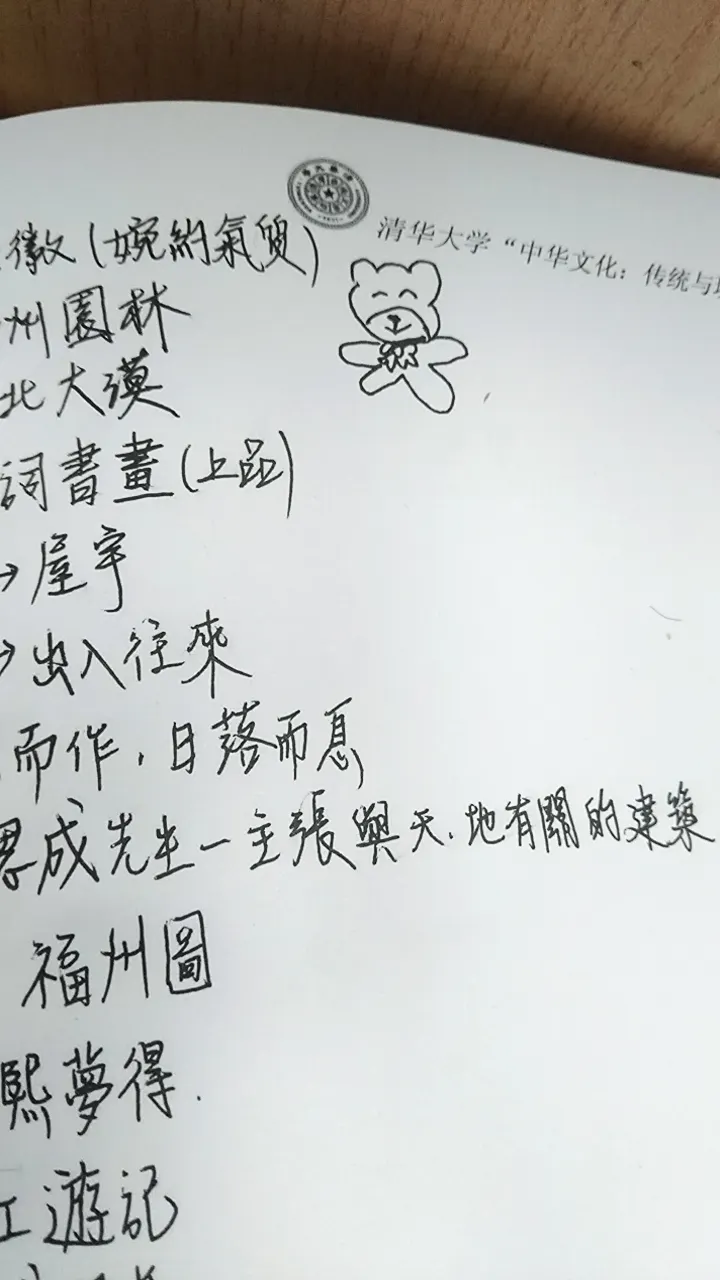 清华大学“中华文化：传统与
徽(婉約氣質)
州園林
北大漠
詞書畫(上品)
→屋宇
→出入往來
而作，日落而息
思成先生－主張與天、地有關的建築
福州圖
熙夢得．
江遊記